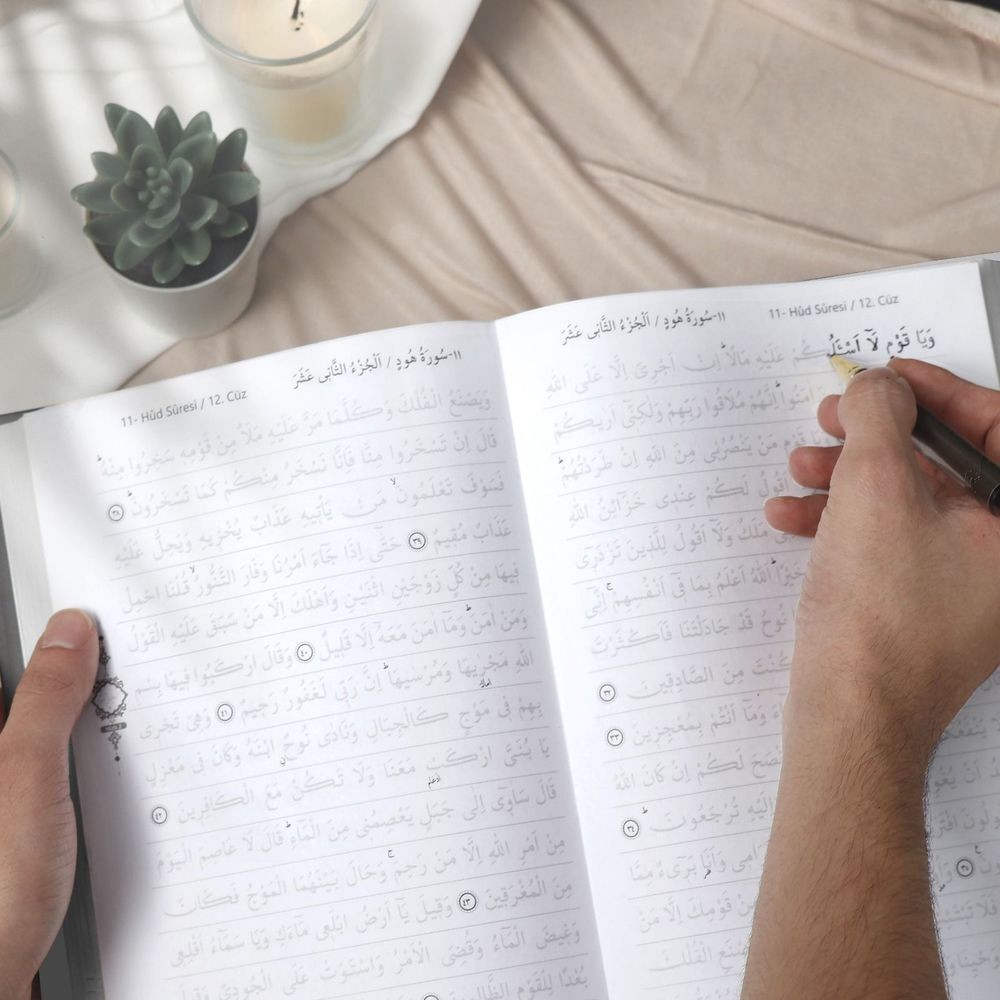 ١١-سُورَةُ هُودٍ / اَلْجُزْءُ الثَّانِى عَشَرَ
11- Hûd Sûresi / 12. Cüz
وَيَا قَوْمِ لَآ اَسْـَٔلُكُمْ عَلَيْهِ مَالًا اِنْ اَجْرِىَ اِلَّا عَلَى اللّٰهِ
اٰمَنُوا اِنَّهُمْ مُلَاقُوا رَبِّهِمْ وَلٰكِنّٖٓى اَرٰيكُمْ
قَوْمِ مَنْ يَنْصُرُنٖى مِنَ اللّٰهِ اِنْ طَرَدْتُهُمْ
اَقُولُ لَكُمْ عِنْدٖى خَزَٓائِنُ اللّٰهِ
مَلَكٌ وَلَٓا اَقُولُ لِلَّذٖينَ تَزْدَرٖٓى
خَيْرًا اَللّٰهُ اَعْلَمُ بِمَا فٖٓى اَنْفُسِهِمْ اِنّٖٓى
نُوحُ قَدْ جَادَلْتَنَا فَاَكْثَرْتَ
كُنْتَ مِنَ الصَّادِقٖينَ ٣٢
وَمَٓا اَنْتُمْ بِمُعْجِزٖينَ ٣٣
لَكُمْ اِنْ كَانَ اللّٰهُ
تُرْجَعُونَ ٣٤
وَاَنَا بَرٖٓىءٌ مِمَّا ٣٥
قَوْمِكَ اِلَّا مَنْ
الْفُلْكَ
١١-سُورَةُ هُودٍ / اَلْجُزْءُ الثَّانِى عَشَرَ
11- Hûd Sûresi / 12. Cüz
وَيَصْنَعُ الْفُلْكَ وَكُلَّمَا مَرَّ عَلَيْهِ مَلَاٌ مِنْ قَوْمِهٖ سَخِرُوا مِنْهُ
قَالَ اِنْ تَسْخَرُوا مِنَّا فَاِنَّا نَسْخَرُ مِنْكُمْ كَمَا تَسْخَرُونَ ٣٨
فَسَوْفَ تَعْلَمُونَ مَنْ يَأْتٖيهِ عَذَابٌ يُخْزٖيهِ وَيَحِلُّ عَلَيْهِ
عَذَابٌ مُقٖيمٌ ٣٩ حَتّٰٓى اِذَا جَٓاءَ اَمْرُنَا وَفَارَ التَّنُّورُ قُلْنَا احْمِلْ
فٖيهَا مِنْ كُلٍّ زَوْجَيْنِ اثْنَيْنِ وَاَهْلَكَ اِلَّا مَنْ سَبَقَ عَلَيْهِ الْقَوْلُ
وَمَنْ اٰمَنَ وَمَٓا اٰمَنَ مَعَهُٓ اِلَّا قَلٖيلٌ ٤٠ وَقَالَ ارْكَبُوا فٖيهَا بِسْمِ
اللّٰهِ مَجْرٰۭيهَا وَمُرْسٰيهَا اِنَّ رَبّٖى لَغَفُورٌ رَحٖيمٌ ٤١ وَهِىَ تَجْرٖى
بِهِمْ فٖى مَوْجٍ كَالْجِبَالِ وَنَادٰى نُوحٌ ابْنَهُ وَكَانَ فٖى مَعْزِلٍ
يَا بُنَىَّ ارْكَبْ مَعَنَا وَلَا تَكُنْ مَعَ الْكَافِرٖينَ ٤٢
قَالَ سَاٰوٖٓى اِلٰى جَبَلٍ يَعْصِمُنٖى مِنَ الْمَٓاءِ قَالَ لَا عَاصِمَ الْيَوْمَ
مِنْ اَمْرِ اللّٰهِ اِلَّا مَنْ رَحِمَ وَحَالَ بَيْنَهُمَا الْمَوْجُ فَكَانَ
مِنَ الْمُغْرَقٖينَ ٤٣ وَقٖيلَ يَٓا اَرْضُ ابْلَعٖى مَٓاءَكِ وَيَا سَمَٓاءُ اَقْلِعٖى
وَغٖيضَ الْمَٓاءُ وَقُضِىَ الْاَمْرُ وَاسْتَوَتْ عَلَى الْجُودِىِّ وَقٖيلَ
بُعْدًا لِلْقَوْمِ الظَّالِمٖينَ